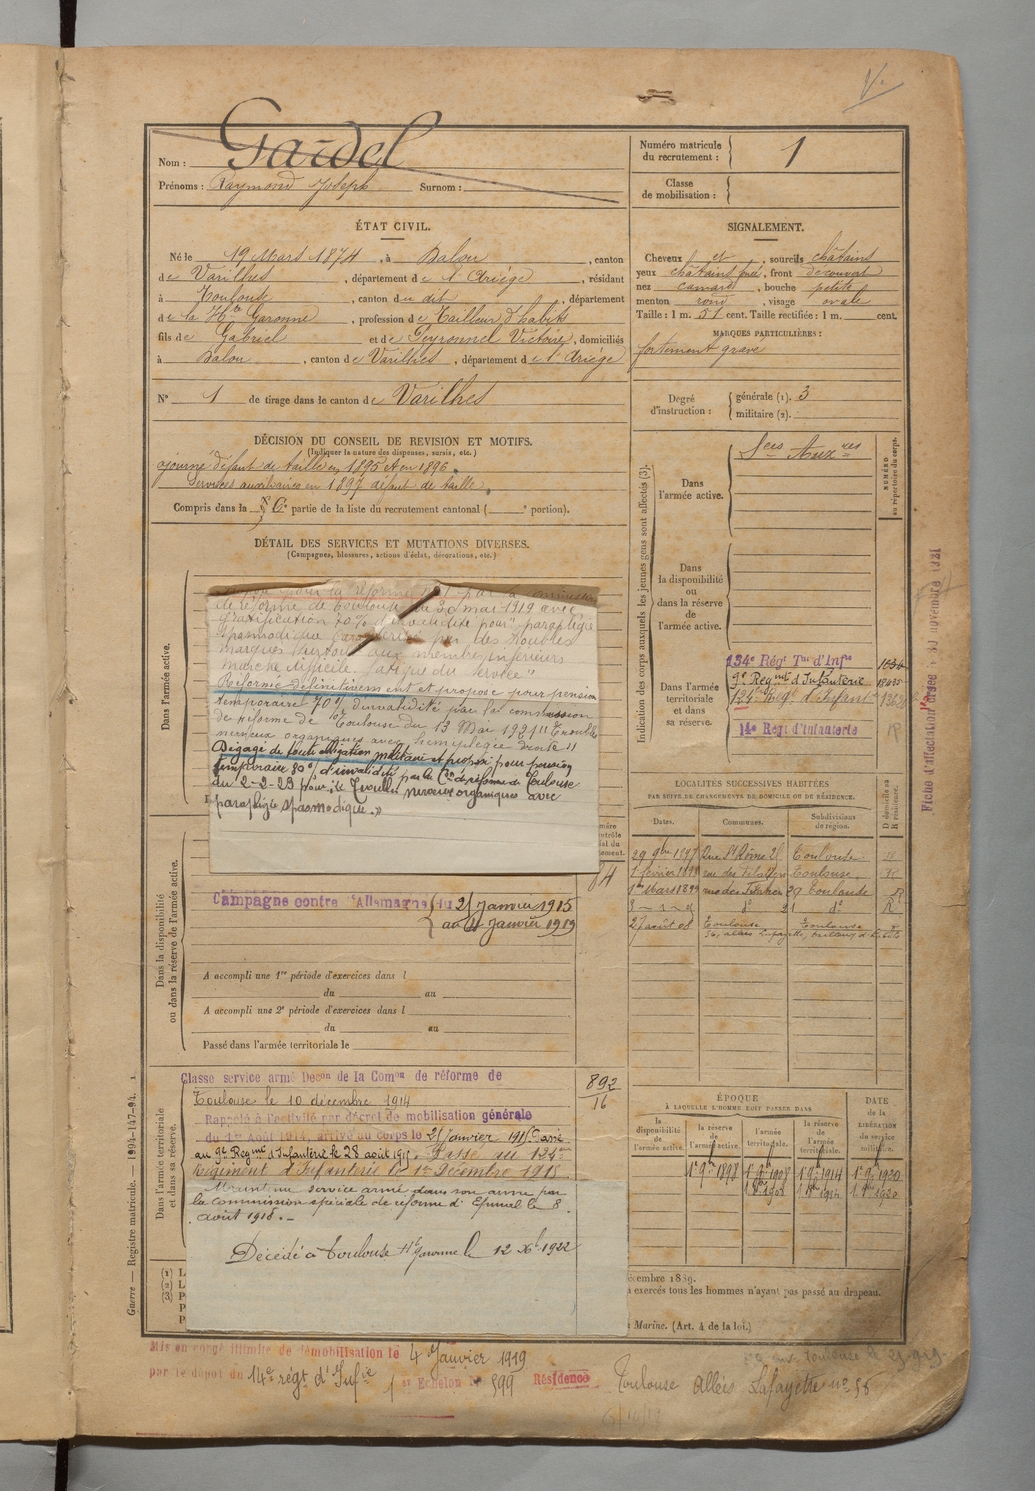 Nom : Gardel
Prénoms : Raymond Joseph Surnom :
Numéro matricule du recrutement : 1
Classe de mobilisation :
ÉTAT CIVIL.
Né le 19 Mars 1874, à Dalou, canton
de Varilhes, département de l'Ariège, résidant
à Toulouse, canton du dit, département
de la Hte Garonne, profession de Tailleur d'habits
fils de Gabriel et de Peyronnel Victoire, domiciliés
à Dalou, canton de Varilhes, département de l'Ariège
N° 1 de tirage dans le canton de Varilhes
SIGNALEMENT.
Cheveux et, sourcils châtains
yeux châtains, front découvert
nez camard, bouche petite
menton rond, visage ovale
Taille : 1 m. 51 cent. Taille rectifiée : 1 m. cent.
MARQUES PARTICULIÈRES :
fortement gravé
DÉCISION DU CONSEIL DE REVISION ET MOTIFS.
(Indiquer la nature des dispenses, sursis, etc.)
ajourné défaut de taille en 1895 et en 1896.
Services auxiliaires en 1897 défaut de taille.
Compris dans la 6e partie de la liste du recrutement cantonal ( e portion).
Degré d'instruction : générale (1). 3
militaire (2).
DÉTAIL DES SERVICES ET MUTATIONS DIVERSES.
(Campagnes, blessures, actions d'éclat, décorations, etc.)
Dans l'armée active.
pour la réforme n° 1 par la commission
de réforme de Toulouse du 30 mai 1919 avec
gratification 70% d'invalidité pour "paraplégie
spasmodique caractérisée par des troubles
marqués surtout aux membres inférieurs
marche difficile. fatigue du service"
Réformé définitivement et proposé pour pension
temporaire 70% d'invalidité par la commission
de réforme de Toulouse du 13 Mai 1921 "Troubles
nerveux organiques avec
Dégagé de toute obligation militaire et proposé pour pension
temporaire 80% d'invalidité par la Con de réforme de Toulouse
du 2-2-23 pour : "Troubles nerveux organiques avec
paraplégie spasmodique."
Dans la disponibilité ou dans la réserve de l'armée active.
Campagne contre l'Allemagne du 21 Janvier 1915
au 11 Janvier 1919
A accompli une 1re période d'exercices dans l
du au
A accompli une 2e période d'exercices dans l
du au
Passé dans l'armée territoriale le
Dans l'armée territoriale et dans sa réserve.
Classe service armé Decon de la Comon de réforme de
Toulouse le 10 décembre 1914
892
16
Rappelé à l'activité par décret de mobilisation générale
du 1er Août 1914, arrivé au corps le 21 Janvier 1915. Passé
au 9e Regmt d'Infanterie le 28 août 1915. Passé au 124me
Régiment d'Infanterie le 1er Décembre 1915
Maintenu service armé dans son arme par
la commission spéciale de réforme d'Epinal le 8
août 1918.
Décédé à Toulouse Hte Garonne le 12 Xbre 1922
Indication des corps auxquels les jeunes gens sont affectés (3).
NUMÉRO au répertoire du corps.
Dans l'armée active.
Sces Auxres
Dans la disponibilité ou dans la réserve de l'armée active.
Dans l'armée territoriale et dans sa réserve.
134e Régt Tal d'Infie
9e Regmt d'Infanterie
124e Régt d'Infant
14e Régt d'Infanterie
LOCALITÉS SUCCESSIVES HABITÉES
PAR SUITE DE CHANGEMENTS DE DOMICILE OU DE RÉSIDENCE.
Dates. Communes. Subdivisions de région. D domicile ou R résidence.
29 9bre 1897 Rue St Rome 21 Toulouse R
février 1898 Toulouse. R
1er Mars 1899 29 Toulouse R
do 21 do R
27 août 08 Toulouse Toulouse
ÉPOQUE
À LAQUELLE L'HOMME DOIT PASSER DANS
la disponibilité de l'armée active. la réserve de l'armée active. l'armée territoriale. la réserve de l'armée territoriale.
DATE de la LIBÉRATION du service militaire.
1er 9bre 1898 1er 9bre 1908 1er 9bre 1914 1er 9bre 1920
décembre 1889.
exercés tous les hommes n'ayant pas passé au drapeau.
Marine. (Art. 4 de la loi.)
Guerre. — Registre matricule. — 1994-147-94.
Mis en congé illimité de démobilisation le 4 Janvier 1919
par le dépôt du 14e régt d'Infie Echelon N° 599 Résidence Toulouse Allées Lafayette n° 56